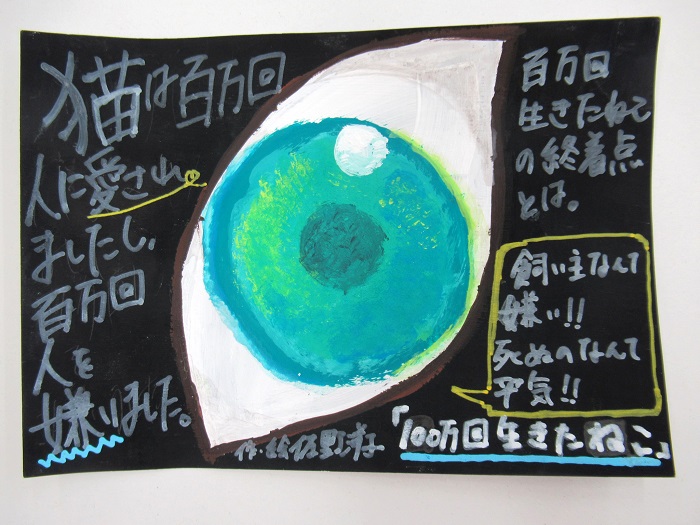 猫は百万回
人に愛され
ましたし、
百万回
人を
嫌いました。
百万回
生きたねこ
の終着点
とは。
飼い主なんて
嫌い!!
死ぬのなんて
平気!!
作・絵 佐野洋子
「100万回生きたねこ」